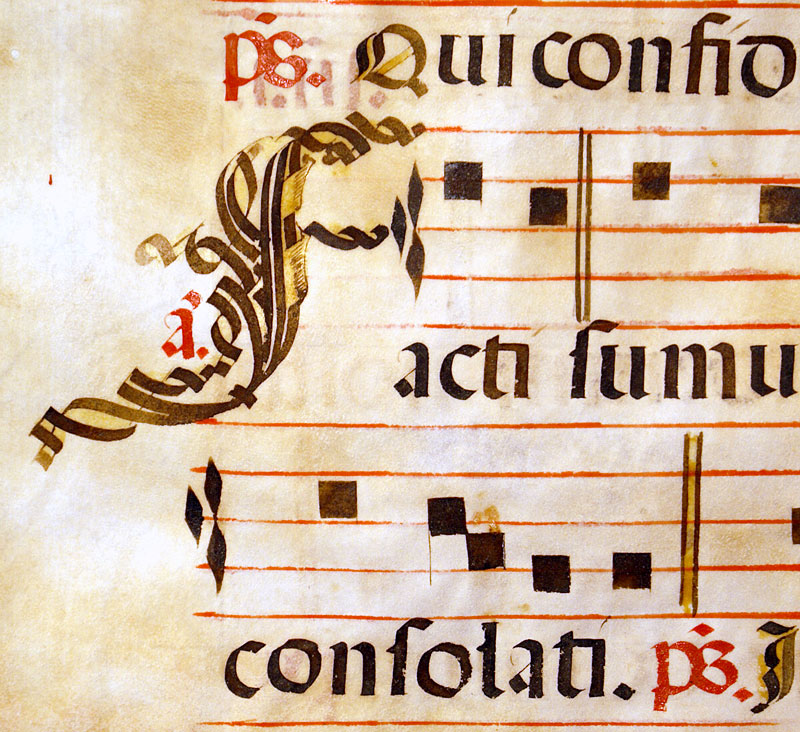 ps. Qui confid
a. Facti sumu
consolati. ps. I